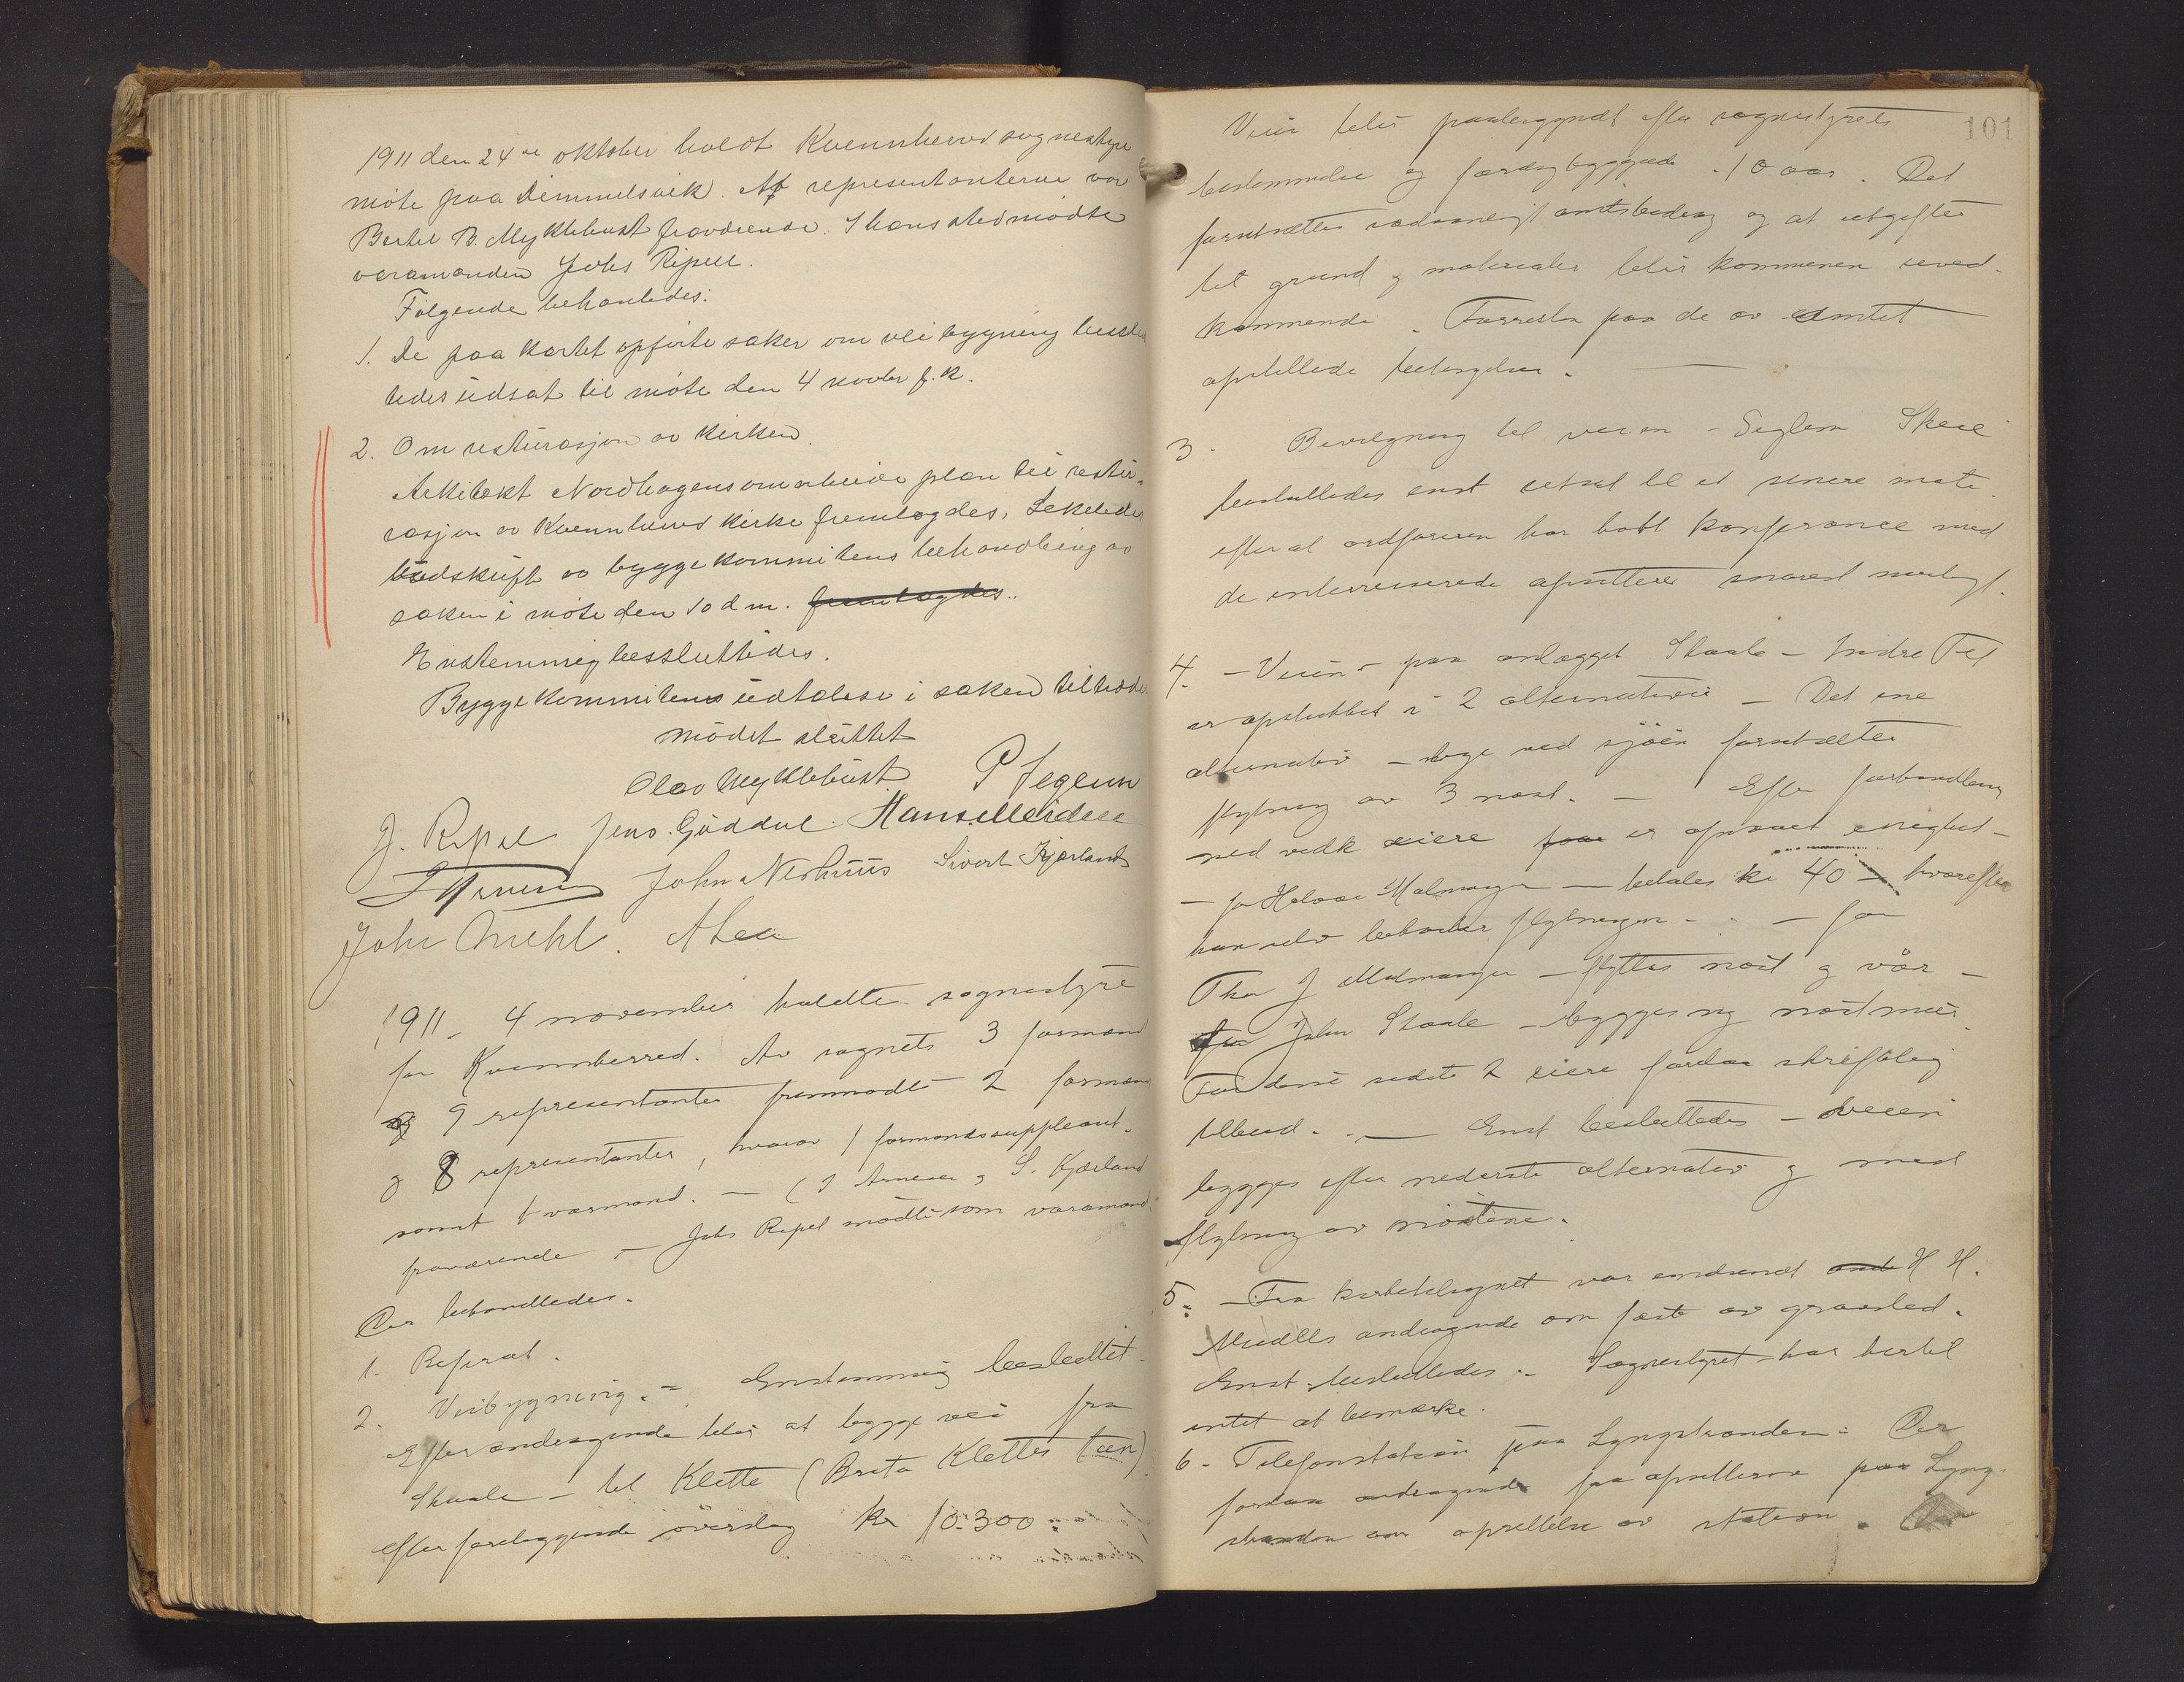 1911 den 24de oktober holdt Kvennherred sognestyre
møte paa Dimmelsvik. Af representanterne var
Bertel B. Myklebust fraværende. I hans sted mødte
varamanden Johs Ripel.
Følgende behanledes:
1. De paa kartet opførte saker om veibygning beslut
tedes üdsat til møte den 4 novbr f. k.
2. Om restürasjon av kirken.
Arkitekt Nordhagens omarbeide plan til restü-
rasjon av Kvennherred kirke fremlagdes,
üdskrift av byggekommitens behandling av
saken i møte den 10 d m. fremlagdes..
Enstemmig besslüttedes.
Byggekommitens üdtalese i saken tiltrædes
mødet slüttet
Olav Myklebüst P Tegeun
J. Ripel Jens. Güddal. Hans Meidell
John Nerhüüs Sivert Kjærland
John Miehl. A Lea
1911 - 4 november holdtes sognestyre
for Kvennherred. Av sognets 3 formænd
og 9 representanter fremmødte 2 formænd
og 8 representanter, hvorav 1 formandssuppleant.
samt 1 varmand. — ( J Arnesen og S. Kjærland
fraværende — Johs Ripel mødte som varamand.
Der behandledes.
1. Referat.
2. Veibygning. - Enstemmig besluttet.
Efter andragende blir at bygge vei fra
Skaala - til Klette (Brita Klettes tæn)
efter foreliggende overslag kr 10.300
101
Veien blir paabegyndt efter sognestyrets
bestemmelse og færdigbygges 10 aar. Det
forutsættes sedvanligt amtsbidrag og at utgifter
til grund og materialer blir kommunen uved-
kommende. Forresten paa de av Amtet
opstillede betingelser.
3. Bevilgning til veien - Seglem Skeie
besluttedes enst utsat til et senere møte.
efter at ordføreren har hatt konferance med
de interesserede opsittere snarest muligt.
4. - Veien paa anlægget Skaala - Indre Tel
er opstukket i 2 alternativer - Det ene
alternativ - lige ved sjøen forutsætter
flytning av 3 nøst. - Efter forhandling
med vedk eiere paa er opnaaet enighet -
- for Malmanger - betales kr 40 - hvorefter
han selv bekoster flytningen - - for
Thor J Malmanger - flyttes nøst og vør -
for John Skaala - bygges ny nøstmur.
Fra disse sidste 2 eiere foreligger skriftlig
tilbud. - Enst besluttedes - Veien
bygges efter nederste alternativ og med
flytning av nøstene.
5. - Fra kirketilsynet var indsendt H H.
Meidells andragende om fæste av gravsted.
Enst besluttedes. - Sognestyret har hertil
intet at bemærke.
6 - Telefonstation paa Lyngstranden - Der
forelaa andragende fra opsitterne paa Lyng-
stranden om oprettelse av station.